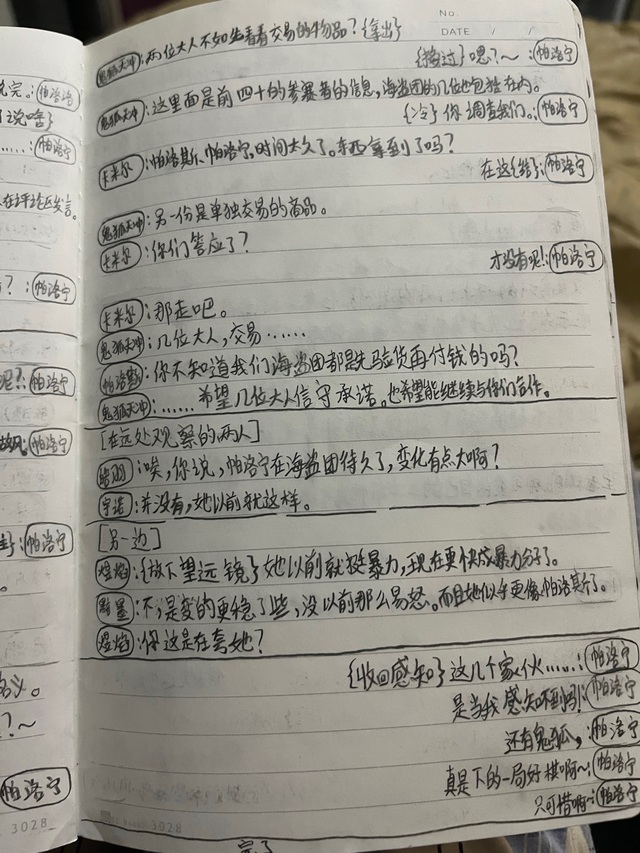 No.
DATE / /
鬼狐天冲:两位大人不如先看看交易的物品?{拿出}
{接过}嗯?~:帕洛宁
鬼狐天冲:这里面是前四十的参赛者的信息,海盗团的几位也包括在内。
{冷}你调查我们。:帕洛宁
卡米尔:帕洛斯、帕洛宁,时间太久了。东西拿到了吗?
在这{给}:帕洛宁
鬼狐天冲:另一份是单独交易的商品。
卡米尔:你们答应了?
才没有呢!:帕洛宁
卡米尔:那走吧。
鬼狐天冲:几位大人,交易……
帕洛斯:你不知道我们海盗团都是先验货再付钱的吗?
鬼狐天冲:……希望几位大人信守承诺。也希望能继续与你们合作。
[在远处观察的两人]
:唉,你说,帕洛宁在海盗团待久了,变化有点大啊?
宇诺:并没有,她以前就这样。
[另一边]
煜焰:{放下望远镜}她以前就挺暴力,现在更快成暴力分子了。
:不,是变的更稳了些,没以前那么易怒。而且她似乎更像帕洛斯了。
煜焰:你这是在夸她?
{收回感知}这几个家伙……:帕洛宁
是当我感知不到吗!:帕洛宁
还有鬼狐,:帕洛宁
真是下的一局好棋啊~:帕洛宁
只可惜啊~:帕洛宁
3028
完。:帕洛洁
说啥}
……:帕洛宁
在评论区发言。
?:帕洛宁
呢?:帕洛宁
:帕洛宁
:帕洛宁
?~
帕洛宁
3028
完了